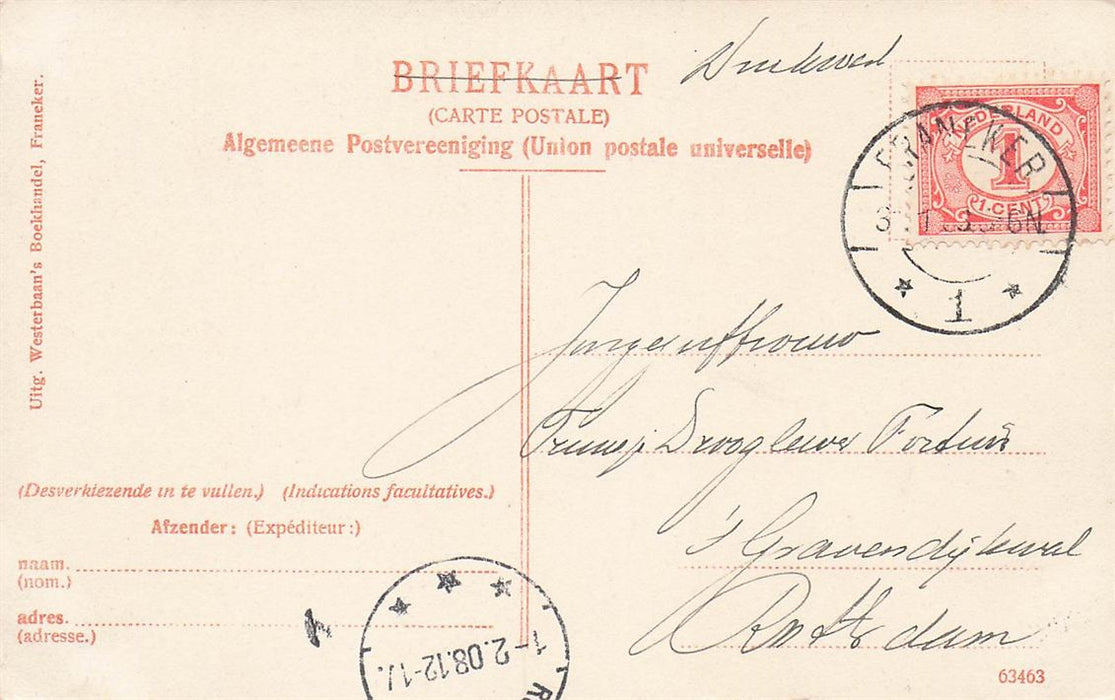 Drukwerk
BRIEFKAART
(CARTE POSTALE)
Algemeene Postvereeniging (Union postale universelle)
NEDERLAND
1
1-CENT
FRANEKER
1
Uitg. Westerbaan's Boekhandel, Franeker.
Jongejuffrouw
Droogleever Fortuin
's Gravendijkwal
Rotterdam
(Desverkiezende in te vullen.) (Indications facultatives.)
Afzender: (Expéditeur:)
naam.
(nom.)
adres.
(adresse.)
1
1-2.08.12-1
63463